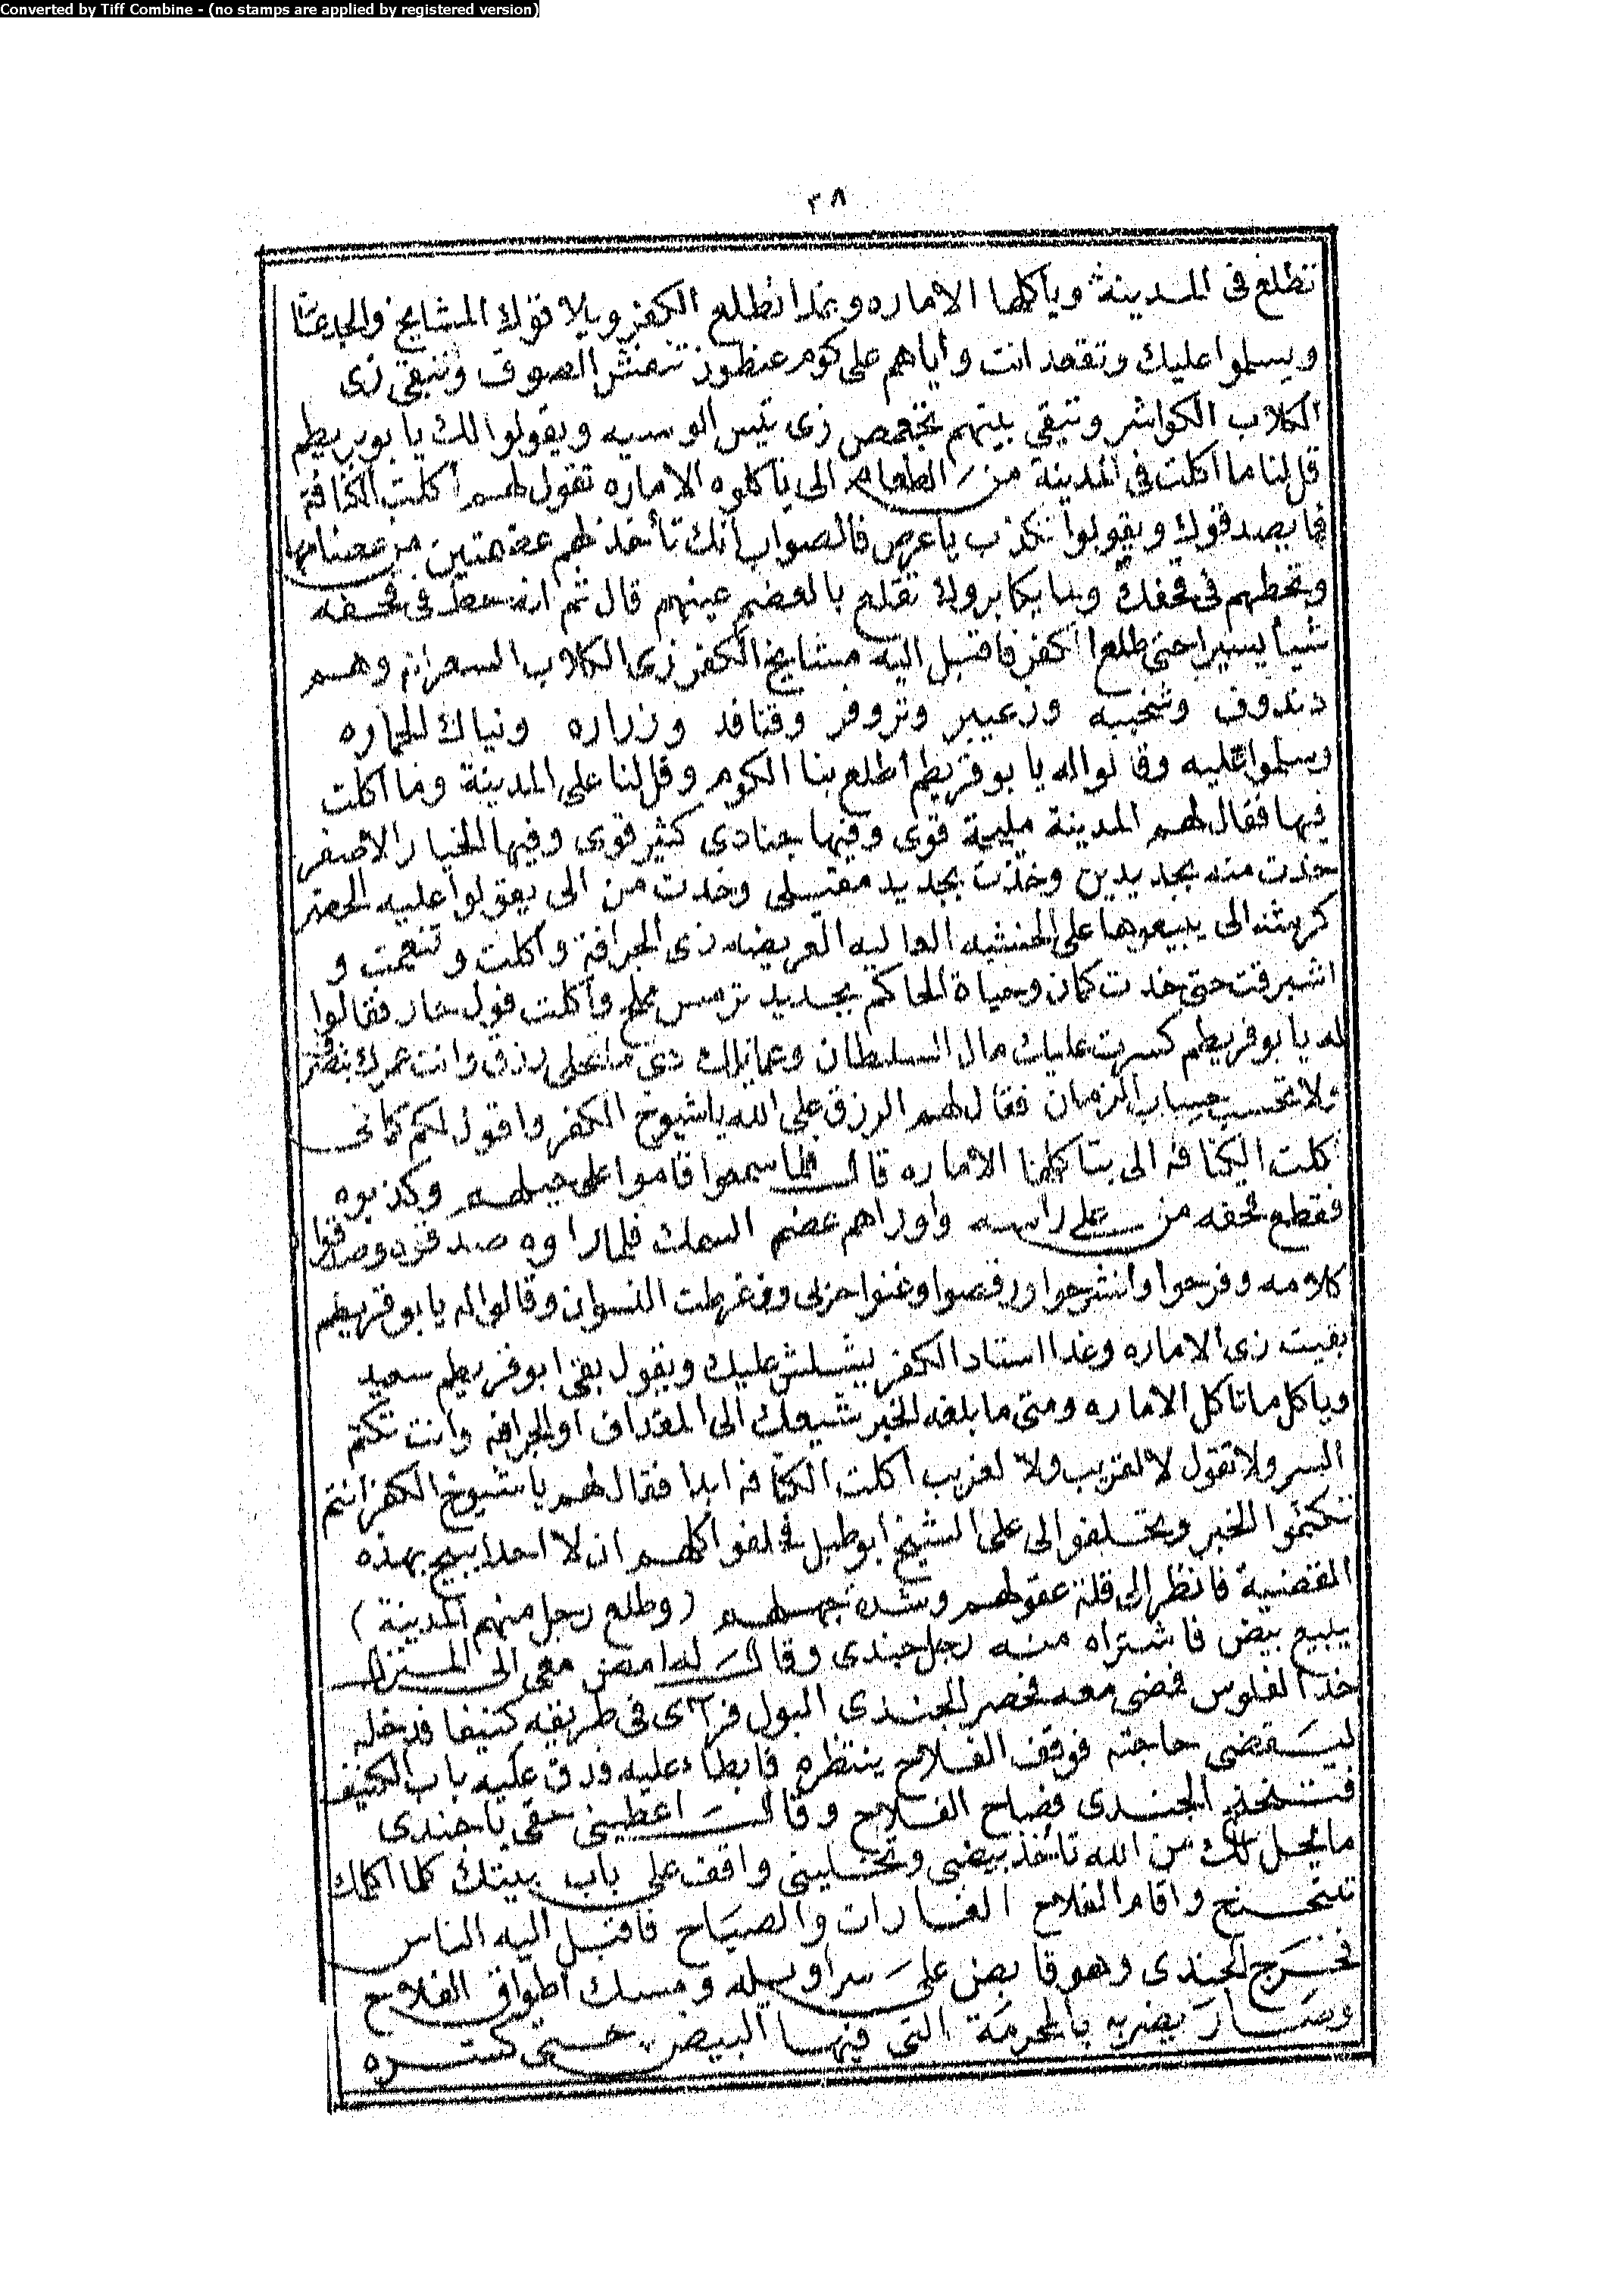 Converted by Tiff Combine - (no stamps are applied by registered version)
٣٨
تطلع فى المدينة وياكلها الاماره وبغدا نطلع الكفر ويلاقوك المشايخ والجدعا
ويسلموا عليك وتقعد انت واياهم على كوم عنطوز تنفش الصوف وتبقى زى
الكلاب الكواشر وتبقى بينهم تقحمص زى تيس الوسيه ويقولوا لك يا بوبريطم
قل لنا ما اكلت فى المدينة من الطعام الى ياكلوه الاماره تقول لهم اكلت الكنافة
فما يصدقوك ويقولوا تكذب يا عرص فالصواب انك تأخذ لهم عضمتين من عضامها
وتحطهم فى قحفك ولما يكابروك تقلع بالعضم عينهم قال ثم انه حط فى قحفه
شيأ يسيرا حتى طلعوا الكفر فاقبل اليه مشايخ الكفر زى الكلاب السعرانه وهم
دندوف وشخيبه وزعيبر ونزوفر وقنافد وزراره ونياك الحماره
وسلموا عليه وقالوا له يا بو قريطم اطلع بنا الكوم وقل لنا على المدينة وما اكلت
فيها فقال لهم المدينة مليحة قوى وفيها جنادى كثير قوى وفيها الخيار الاصفر
خدت منه بجديدين وخدت بجديد مقيلى وخدت من الى يقولوا عليه الحمر
الى يبيعوها على الخشبه العاليه العريضه زى الجرافة واكلت وتنعمت و
اشبرقت حتى خدت كمان وحياة الحاكم بجديد ترمس مملح واكلت فول حار فقالوا
له يا بو قريطم كسرت عليك مال السلطان وعمايلك دى ما تخلى رزق وانت عمرك
ولا تحسب حساب الزمان فقال لهم الرزق على الله يا شيوخ الكفر واقول لكم كمانى
كلت الكنافه الى بتاكلها الاماره قال فلما سمعوا قاموا على حيلهم وكذبوه
فقطع قحفه من على رأسه واوراهم عضم السمك فلما راوه صدقوه وصدقوا
كلامه وفرحوا وانشرحوا ورقصوا وغنوا حزبى وزغرطت النسوان وقالوا له يا بو قريطم
بقيت زى الاماره وغدا استاد الكفر يشلش عليك ويقول بقى ابو قريطم سعيد
وياكل ما تاكل الاماره ومتى ما بلغه الخبر شيعك الى المقداف او الجرافه وانت تكتم
السر ولا تقول لا لقريب ولا لغريب اكلت الكنافه ابدا فقال لهم يا شيوخ الكفر انتم
تكتموا الخبر وتحلفوا لى على الشيخ ابو طبل فحلفوا كلهم ان لا احدا يبيح بهذه
القضية فانظر الى قلة عقولهم وشدة جهلهم (وطلع رجل منهم المدينة)
يبيع بيض فاشتراه منه رجل جندى وقال له امض معى الى المنزل
خذ الفلوس فمضى معه فحصر الجندى البول فرآى فى طريقه كنيفا فدخله
ليقضى حاجته فوقف الفلاح ينتظره فابطاء عليه فدق عليه باب الكنيف
فتنحنح الجندى فصاح الفلاح وقال اعطينى حقى يا جندى
ما يحل لك من الله تأخذ بيضى وتخلينى واقف على باب بيتك كلما اكلمك
تتنحنح واقام الفلاح الغارات والصياح فاقبل اليه الناس
فخرج الجندى وهو قابض على سراويله ومسك اطواق الفلاح
وصار يضربه بالمحرمة التى فيها البيض حتى كسره